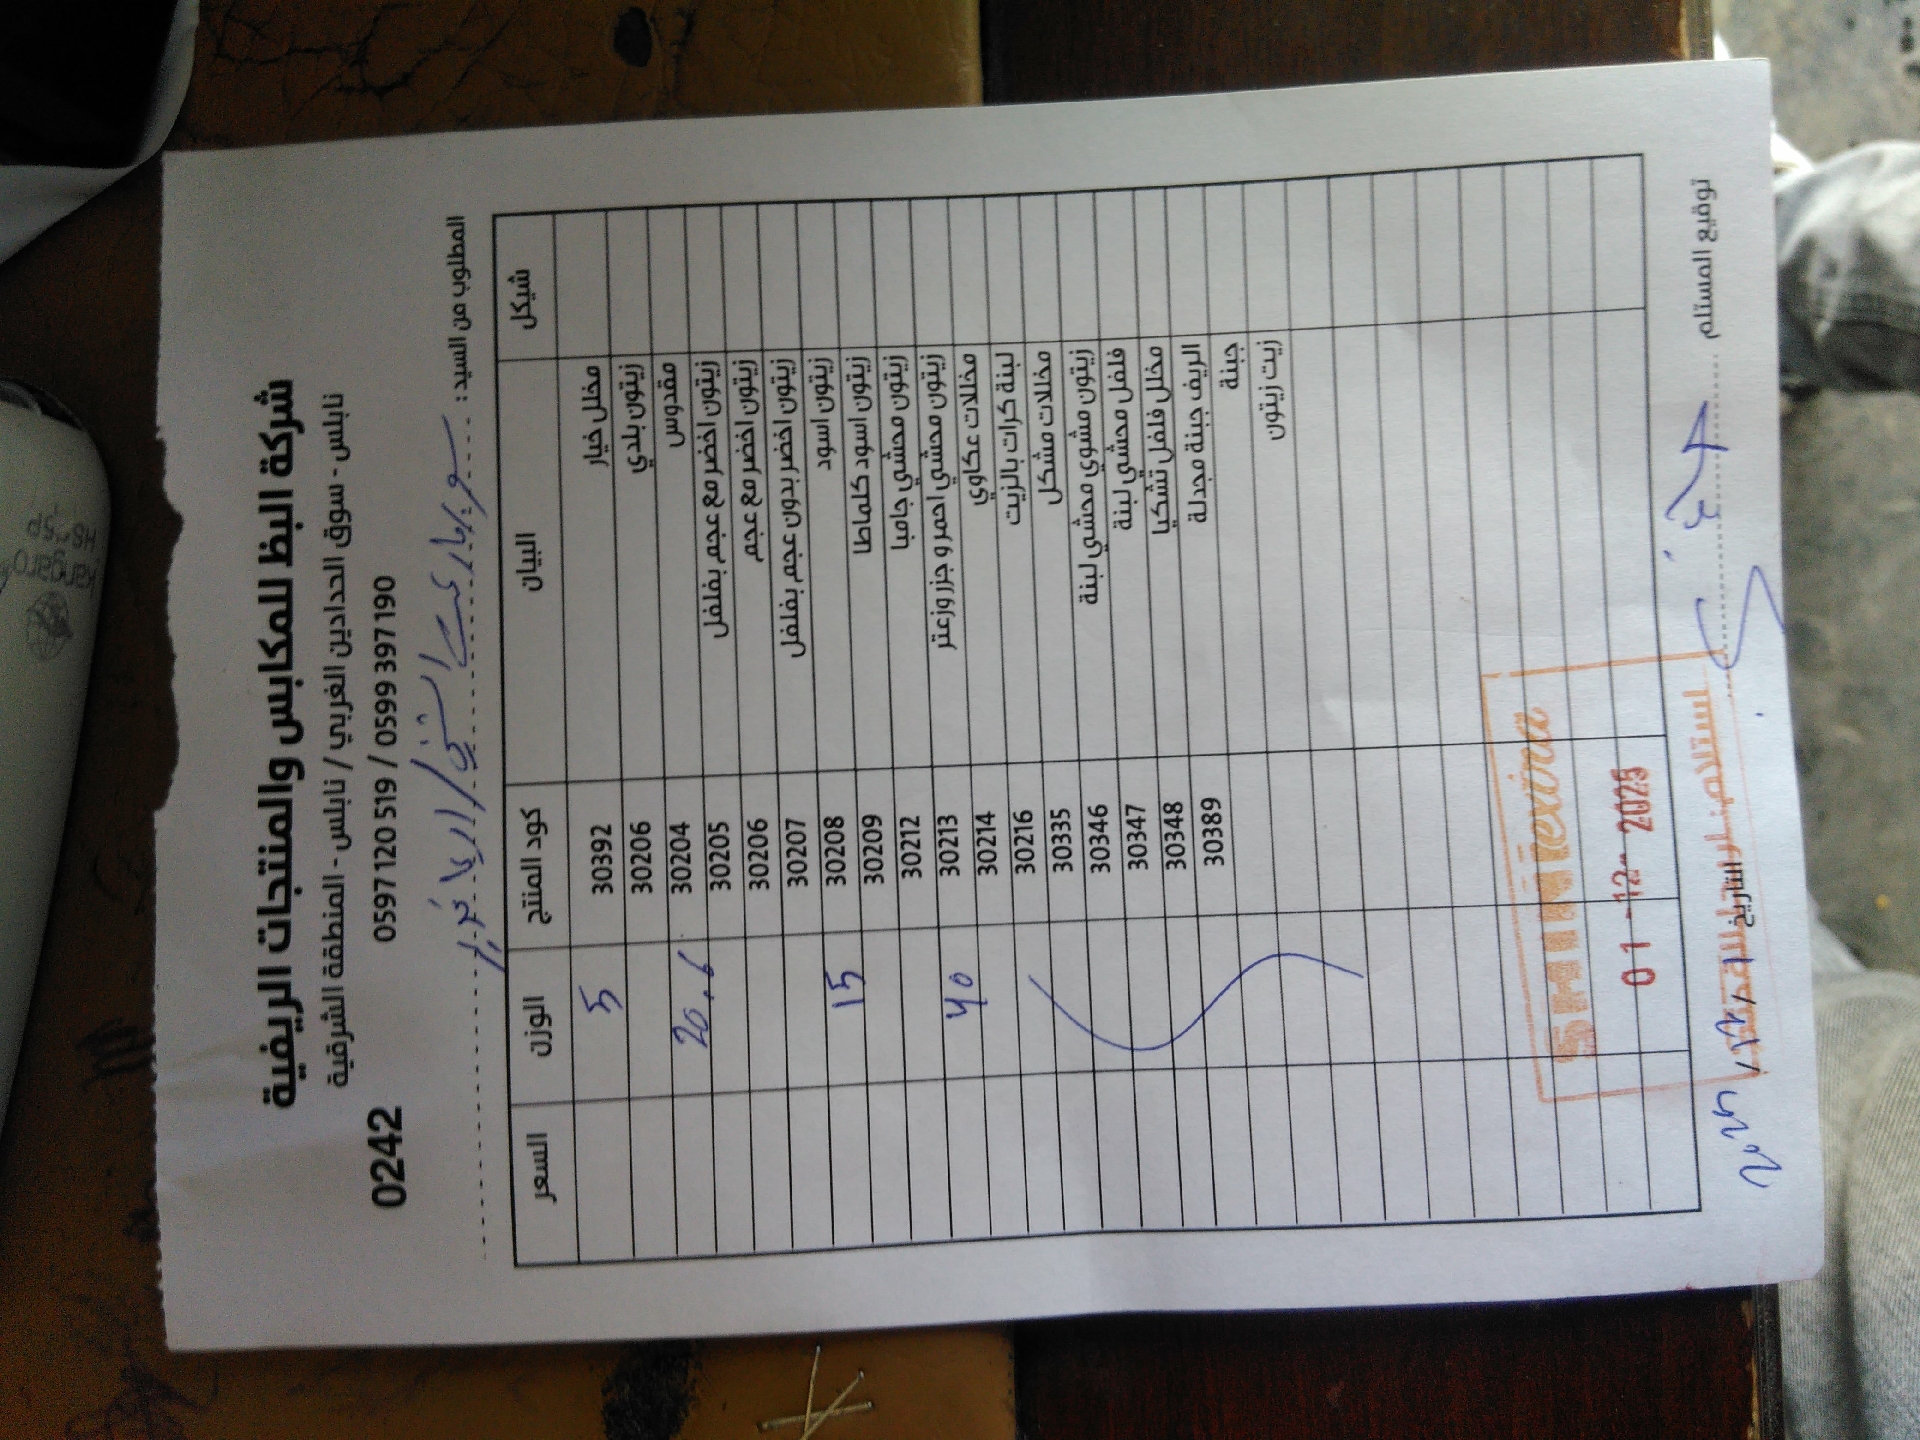 شركة البظ للمكابس والمنتجات الريفية
نابلس - سوق الحدادين الغربي / نابلس - المنطقة الشرقية
0597 120 519 / 0599 397 190
0242
المطلوب من السيد :
شيكل البيان كود المنتج الوزن السعر
مخلل خيار 30392 5
زيتون بلدي 30206
مقدوس 30204 20,6
زيتون اخضر مع عجم بفلفل 30205
زيتون اخضر مع عجم 30206
زيتون اخضر بدون عجم بفلفل 30207
زيتون اسود 30208 15
زيتون اسود كلماطا 30209
زيتون محشي جامبا 30212
زيتون محشي احمر و جزر وزعتر 30213
مخللات عكاوي 30214
لبنة كرات بالزيت 30216
مخللات مشكل 30335
زيتون مشوي محشي لبنة 30346
فلفل محشي لبنة 30347
مخلل فلفل تشكيا 30348
الريف جبنة مجدلة 30389
جبنة
زيت زيتون
SHINI extra
01 -12- 2025
توقيع المستلم
التاريخ
Kangaro
HS-45P